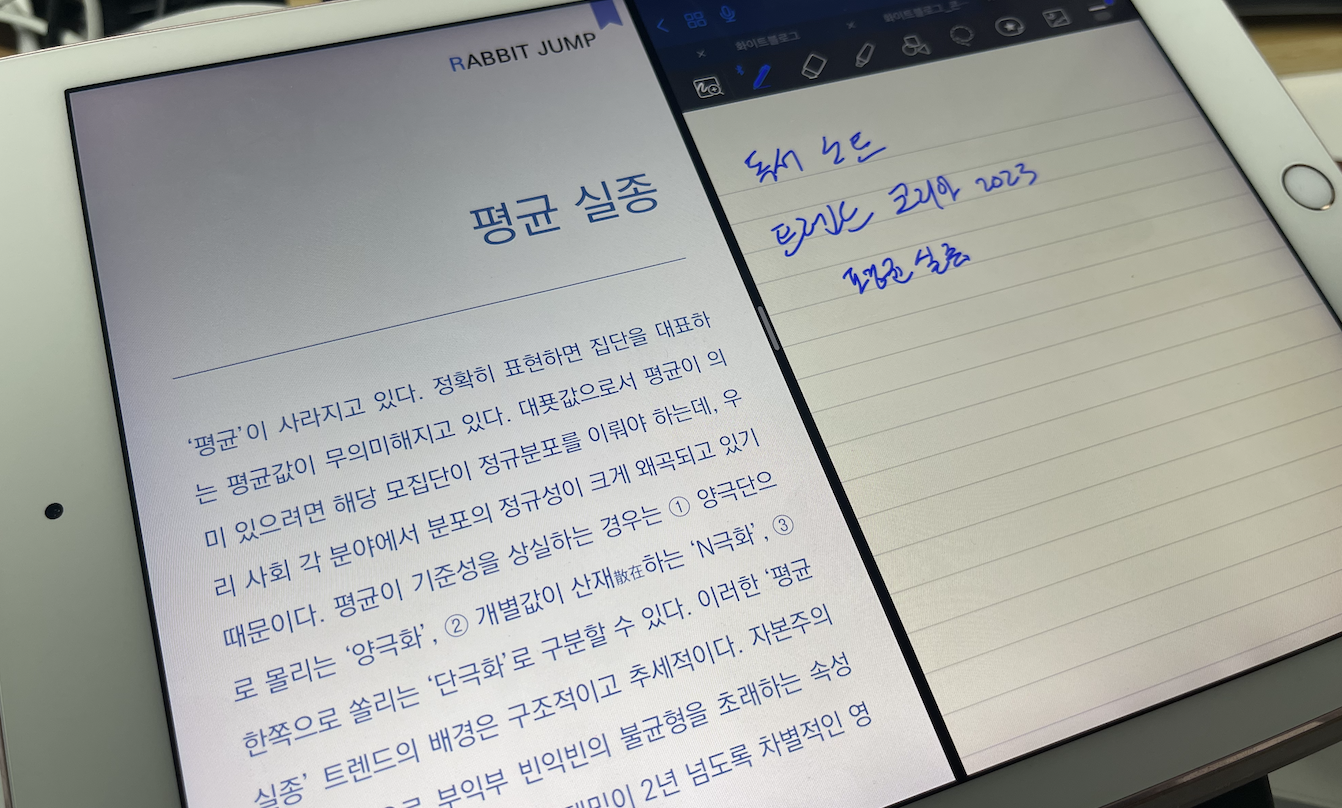 RABBIT JUMP
평균 실종
‘평균’이 사라지고 있다. 정확히 표현하면 집단을 대표하
는 평균값이 무의미해지고 있다. 대푯값으로서 평균이 의
미 있으려면 해당 모집단이 정규분포를 이뤄야 하는데, 우
리 사회 각 분야에서 분포의 정규성이 크게 왜곡되고 있기
때문이다. 평균이 기준성을 상실하는 경우는 ① 양극단으
로 몰리는 ‘양극화’, ② 개별값이 산재散在하는 ‘N극화’, ③
한쪽으로 쏠리는 ‘단극화’로 구분할 수 있다. 이러한 ‘평균
실종’ 트렌드의 배경은 구조적이고 추세적이다. 자본주의
부익부 빈익빈의 불균형을 초래하는 속성
2년 넘도록 차별적인 영
화이트벨로그
독서 노트
트렌드 코리아 2023
평균 실종